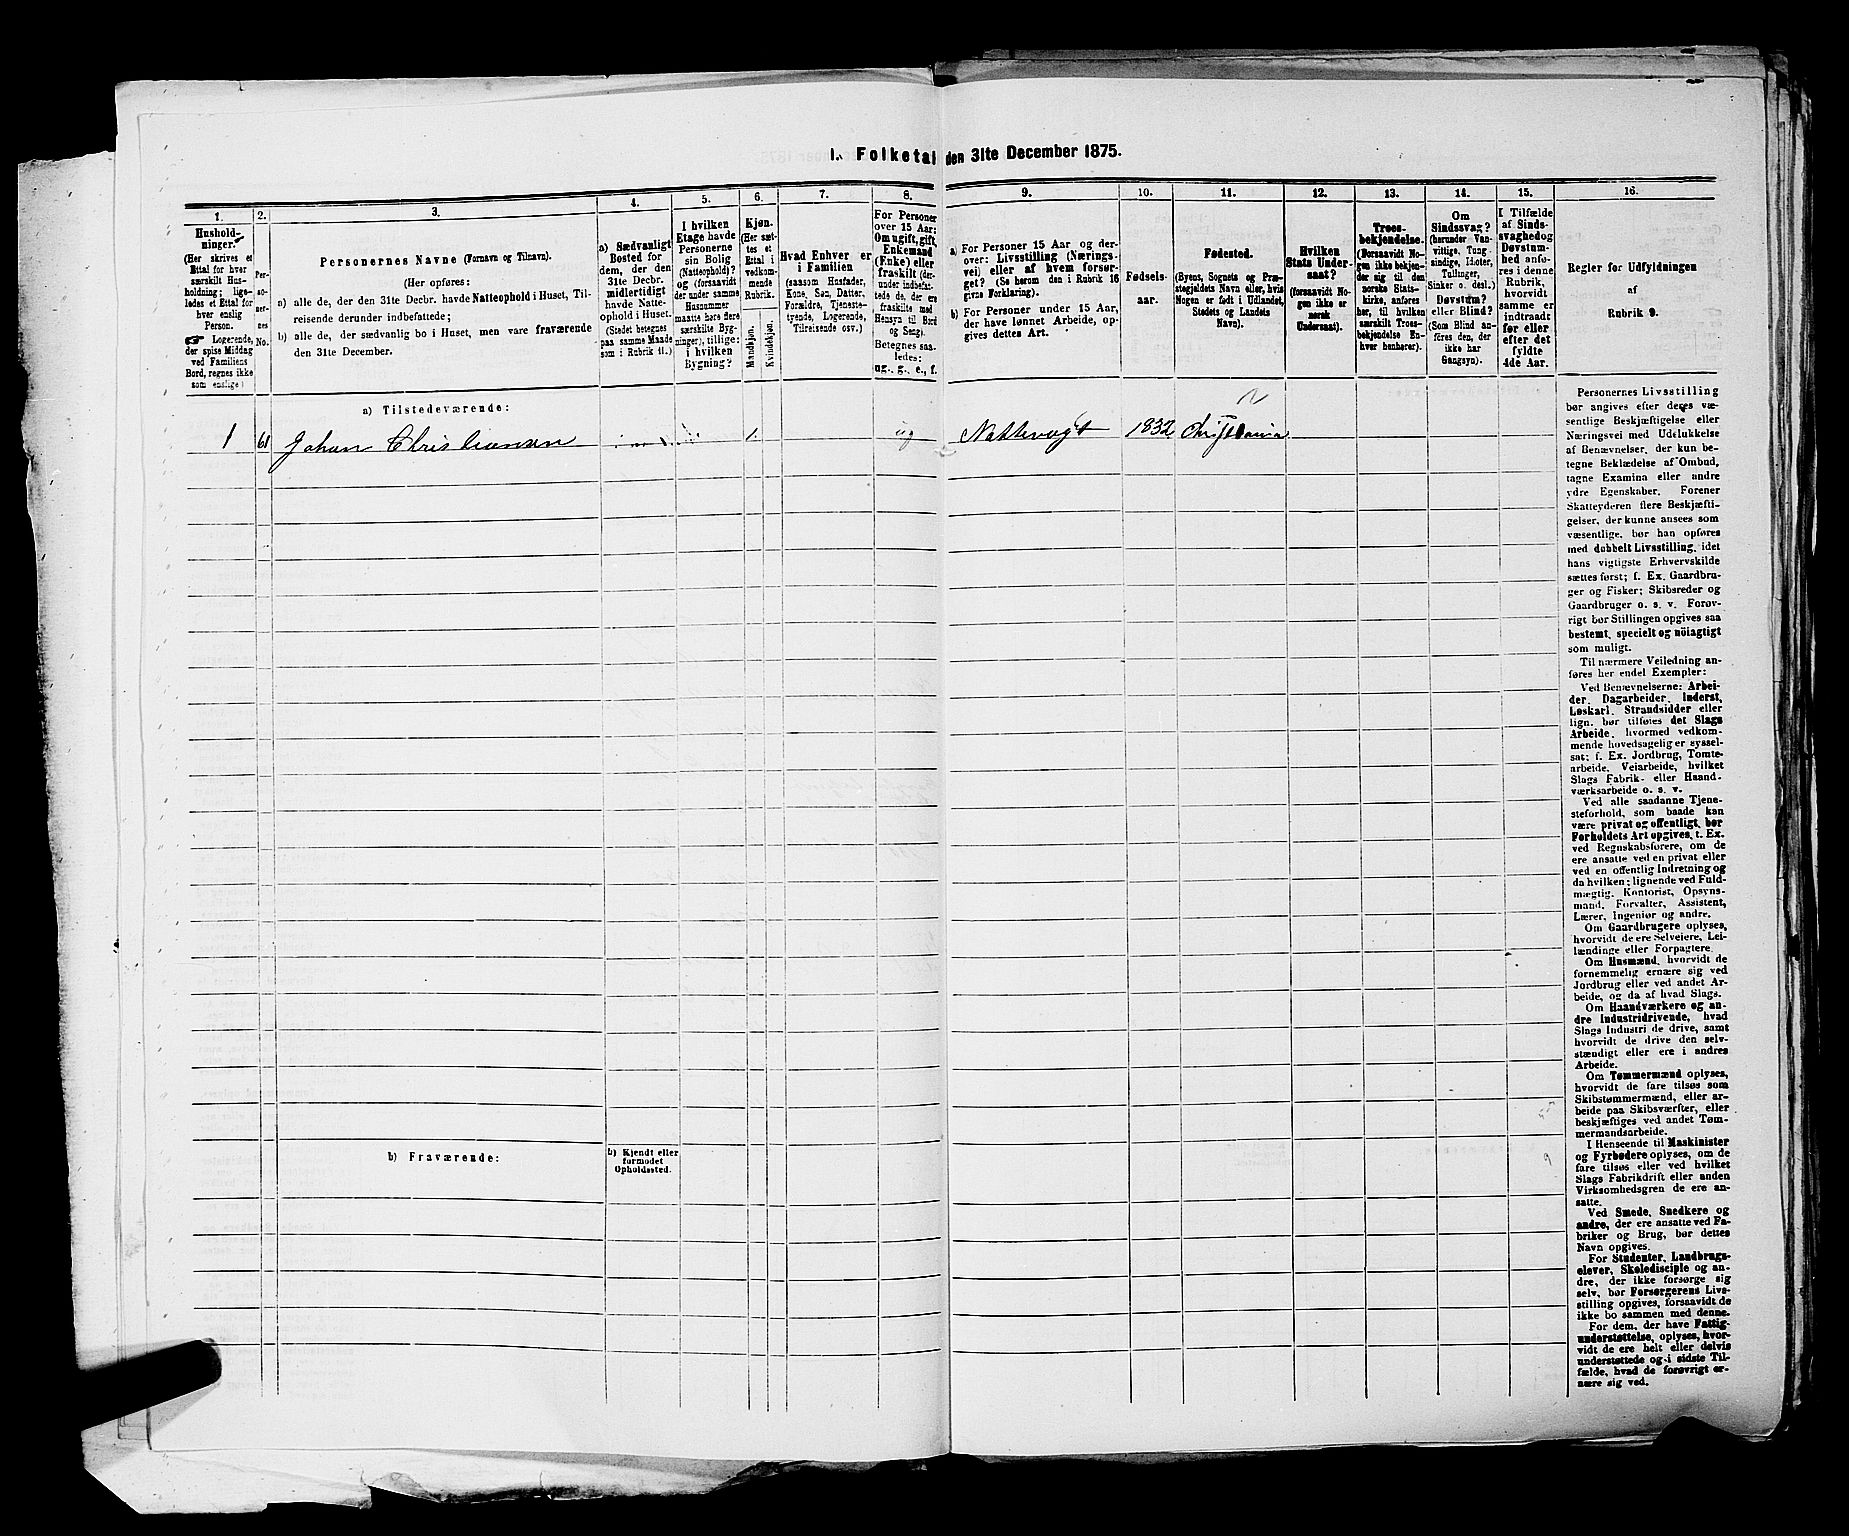 I. Folketal den 31te December 1875.
1.
2.
3.
4.
5.
6.
7.
8.
9.
10.
11.
12.
13.
14.
15.
16.
Hushold-
ninger.
(Her skrives et
Ettal for hver
særskilt Hus-
holdning; lige-
ledes et Ettal for
hver enslig
Person.
☞ Logerende,
der spise Middag
ved Familiens
Bord, regnes ikke
som enslige)
Per-
so-
ner-
nes
No.
Personernes Navne (Fornavn og Tilnavn).
(Her opføres:
a) alle de, der den 31te Decbr. havde Natteophold i Huset, Til-
reisende derunder indbefattede;
b) alle de, der sædvanlig bo i Huset, men vare fraværende
den 31te December.
a) Sædvanligt
Bosted for
dem, der den
31te Decbr.
midlertidigt
havde Natte-
ophold i Huset.
(Stedet betegnes
paa samme Maade
som i Rubrik 11.)
I hvilken
Etage havde
Personerne
sin Bolig
(Natteophold)?
og (forsaavidt
der under samme
Husnummer
maatte høre flere
særskilte Byg-
ninger), tillige:
i hvilken
Bygning?
Kjøn.
(Her sæt-
tes et
Ettal i
vedkom-
mende
Rubrik.
Mandkjøn.
Kvindekjøn.
Hvad Enhver er
i Familien
(saasom Husfader,
Kone, Søn, Datter,
Forældre, Tjeneste-
tyende, Logerende,
Tilreisende osv.)
For Personer
over 15 Aar:
Om ugift, gift,
Enkemand
(Enke) eller
fraskilt (der-
under indbefat-
tede de, der ere
fraskilte med
Hensyn til Bord
og Seng).
Betegnes saa-
ledes:
ug., g., e., f.
a) For Personer 15 Aar og der-
over: Livsstilling (Nærings-
vei) eller af hvem forsør-
get? (Se herom den i Rubrik 16
givne Forklaring).
b) For Personer under 15 Aar,
der have lønnet Arbeide, op-
gives dettes Art.
Fødsels-
aar.
Fødested.
(Byens, Sognets og Præ-
stegjeldets Navn eller, hvis
Nogen er født i Udlandet,
Stedets og Landets
Navn).
Hvilken
Stats Under-
saat?
(forsaavidt No-
gen ikke er
norsk
Undersaat).
Troes-
bekjendelse.
(Forsaavidt No-
gen ikke bekjen-
der sig til den
norske Stats-
kirke, anføres
her, til hvilken
særskilt Troes-
bekjendelse En-
hver henhører).
Om
Sindssvag?
(herunder Van-
vittige, Tung-
sindige, Idioter,
Tullinger,
Sinker o. desl.)
Døvstum?
eller Blind?
(Som Blind an-
føres den, der
ikke har
Gangsyn).
I Tilfælde
af Sinds-
svaghed og
Døvstum-
hed anfø-
res i denne
Rubrik,
hvorvidt
samme er
indtraadt
før eller
efter det
fyldte
4de Aar.
Regler for Udfyldningen
af
Rubrik 9.
a) Tilstedeværende:
1 61 Johan Christiansen 1. ug Nattevagt 1832 Christiania
b) Fraværende:
b) Kjendt eller
formodet
Opholdssted.
Personernes Livsstilling
bør angives efter deres væ-
sentlige Beskjæftigelse eller
Næringsvei med Udelukkelse
af Benævnelser, der kun be-
tegne Beklædelse af Ombud,
tagne Examina eller andre
ydre Egenskaber. Forener
Skatteyderen flere Beskjæfti-
gelser, der kunne ansees som
væsentlige, bør han opføres
med dobbelt Livsstilling, idet
hans vigtigste Erhvervskilde
sættes først; f. Ex. Gaardbru-
ger og Fisker; Skibsreder og
Gaardbruger o. s. v. Forøv-
rigt bør Stillingen opgives saa
bestemt, specielt og nöiagtigt
som muligt.
Til nærmere Veiledning an-
føres her endel Exempler:
Ved Benævnelserne: Arbei-
der, Dagarbeider, Inderst,
Løskarl, Strandsidder eller
lign. bør tilføies det Slags
Arbeide, hvormed vedkom-
mende hovedsagelig er syssel-
sat; f. Ex. Jordbrug, Tomte-
arbeide, Veiarbeide, hvilket
Slags Fabrik- eller Haand-
værksarbeide o. s. v.
Ved alle saadanne Tjene-
steforhold, som baade kan
være privat og offentligt, bør
Forholdets Art opgives, t. Ex.
ved Regnskabsførere, om de
ere ansatte ved en privat eller
ved en offentlig Indretning og
da hvilken; lignende ved Fuld-
mægtig, Kontorist, Opsyns-
mand, Forvalter, Assistent,
Lærer, Ingeniør og andre.
Om Gaardbrugere oplyses,
hvorvidt de ere Selveiere, Lei-
lændinge eller Forpagtere.
Om Husmænd, hvorvidt de
fornemmelig ernære sig ved
Jordbrug eller ved andet Ar-
beide, og da af hvad Slags.
Om Haandværkere og an-
dre Industridrivende, hvad
Slags Industri de drive, samt
hvorvidt de drive den selv-
stændigt eller ere i andres
Arbeide.
Om Tømmermænd oplyses,
hvorvidt de fare tilsøs som
Skibstømmermænd, eller ar-
beide paa Skibsværfter, eller
beskjæftiges ved andet Tøm-
mermandsarbeide.
I Henseende til Maskinister
og Fyrbødere oplyses, om de
fare tilsøs eller ved hvilket
Slags Fabrikdrift eller anden
Virksomhedsgren de ere an-
satte.
Ved Smede, Snedkere og
andre, der ere ansatte ved Fa-
briker og Brug, bør dettes
Navn opgives.
For Studenter, Landbrugs-
elever, Skoledisciple og an-
dre, der ikke forsørge sig
selv, bør Forsørgerens Livs-
stilling opgives, forsaavidt de
ikke bo sammen med denne.
For dem, der have Fattig-
understøttelse, oplyses, hvor-
vidt de ere helt eller delvis
understøttede og i sidste Til-
fælde, hvad de forøvrigt er-
nære sig ved.